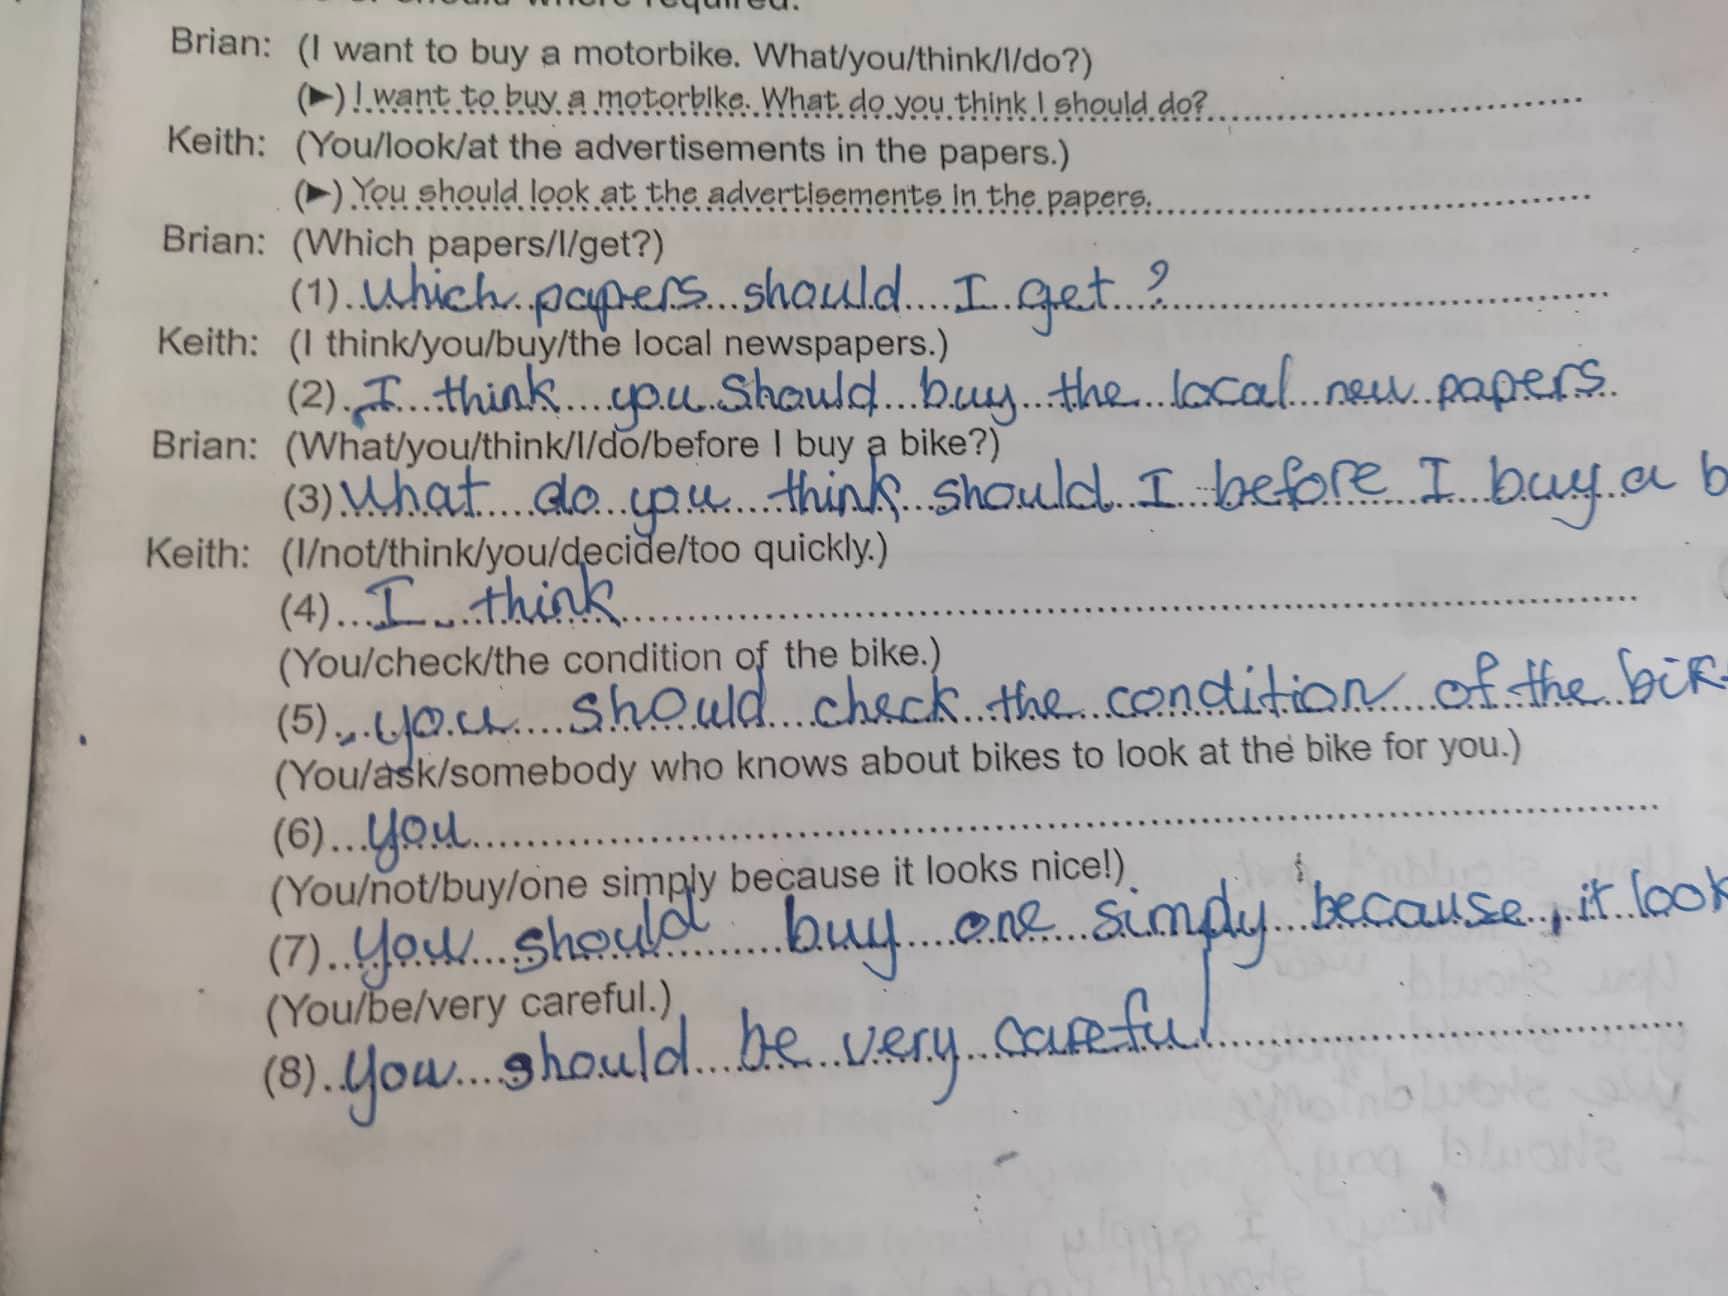 should where required.
Brian: (I want to buy a motorbike. What/you/think/I/do?)
(►) I want to buy a motorbike. What do you think I should do?
Keith: (You/look/at the advertisements in the papers.)
(►) You should look at the advertisements in the papers.
Brian: (Which papers/I/get?)
(1) Which papers should I get?
Keith: (I think/you/buy/the local newspapers.)
(2) I think you Should buy the local new papers.
Brian: (What/you/think/I/do/before I buy a bike?)
(3) What do you think should I before I buy a b
Keith: (I/not/think/you/decide/too quickly.)
(4) I think
(You/check/the condition of the bike.)
(5) you should check the condition of the bik
(You/ask/somebody who knows about bikes to look at the bike for you.)
(6) you
(You/not/buy/one simply because it looks nice!)
(7) You should buy one simply because, it look
(You/be/very careful.)
(8) You should be very careful